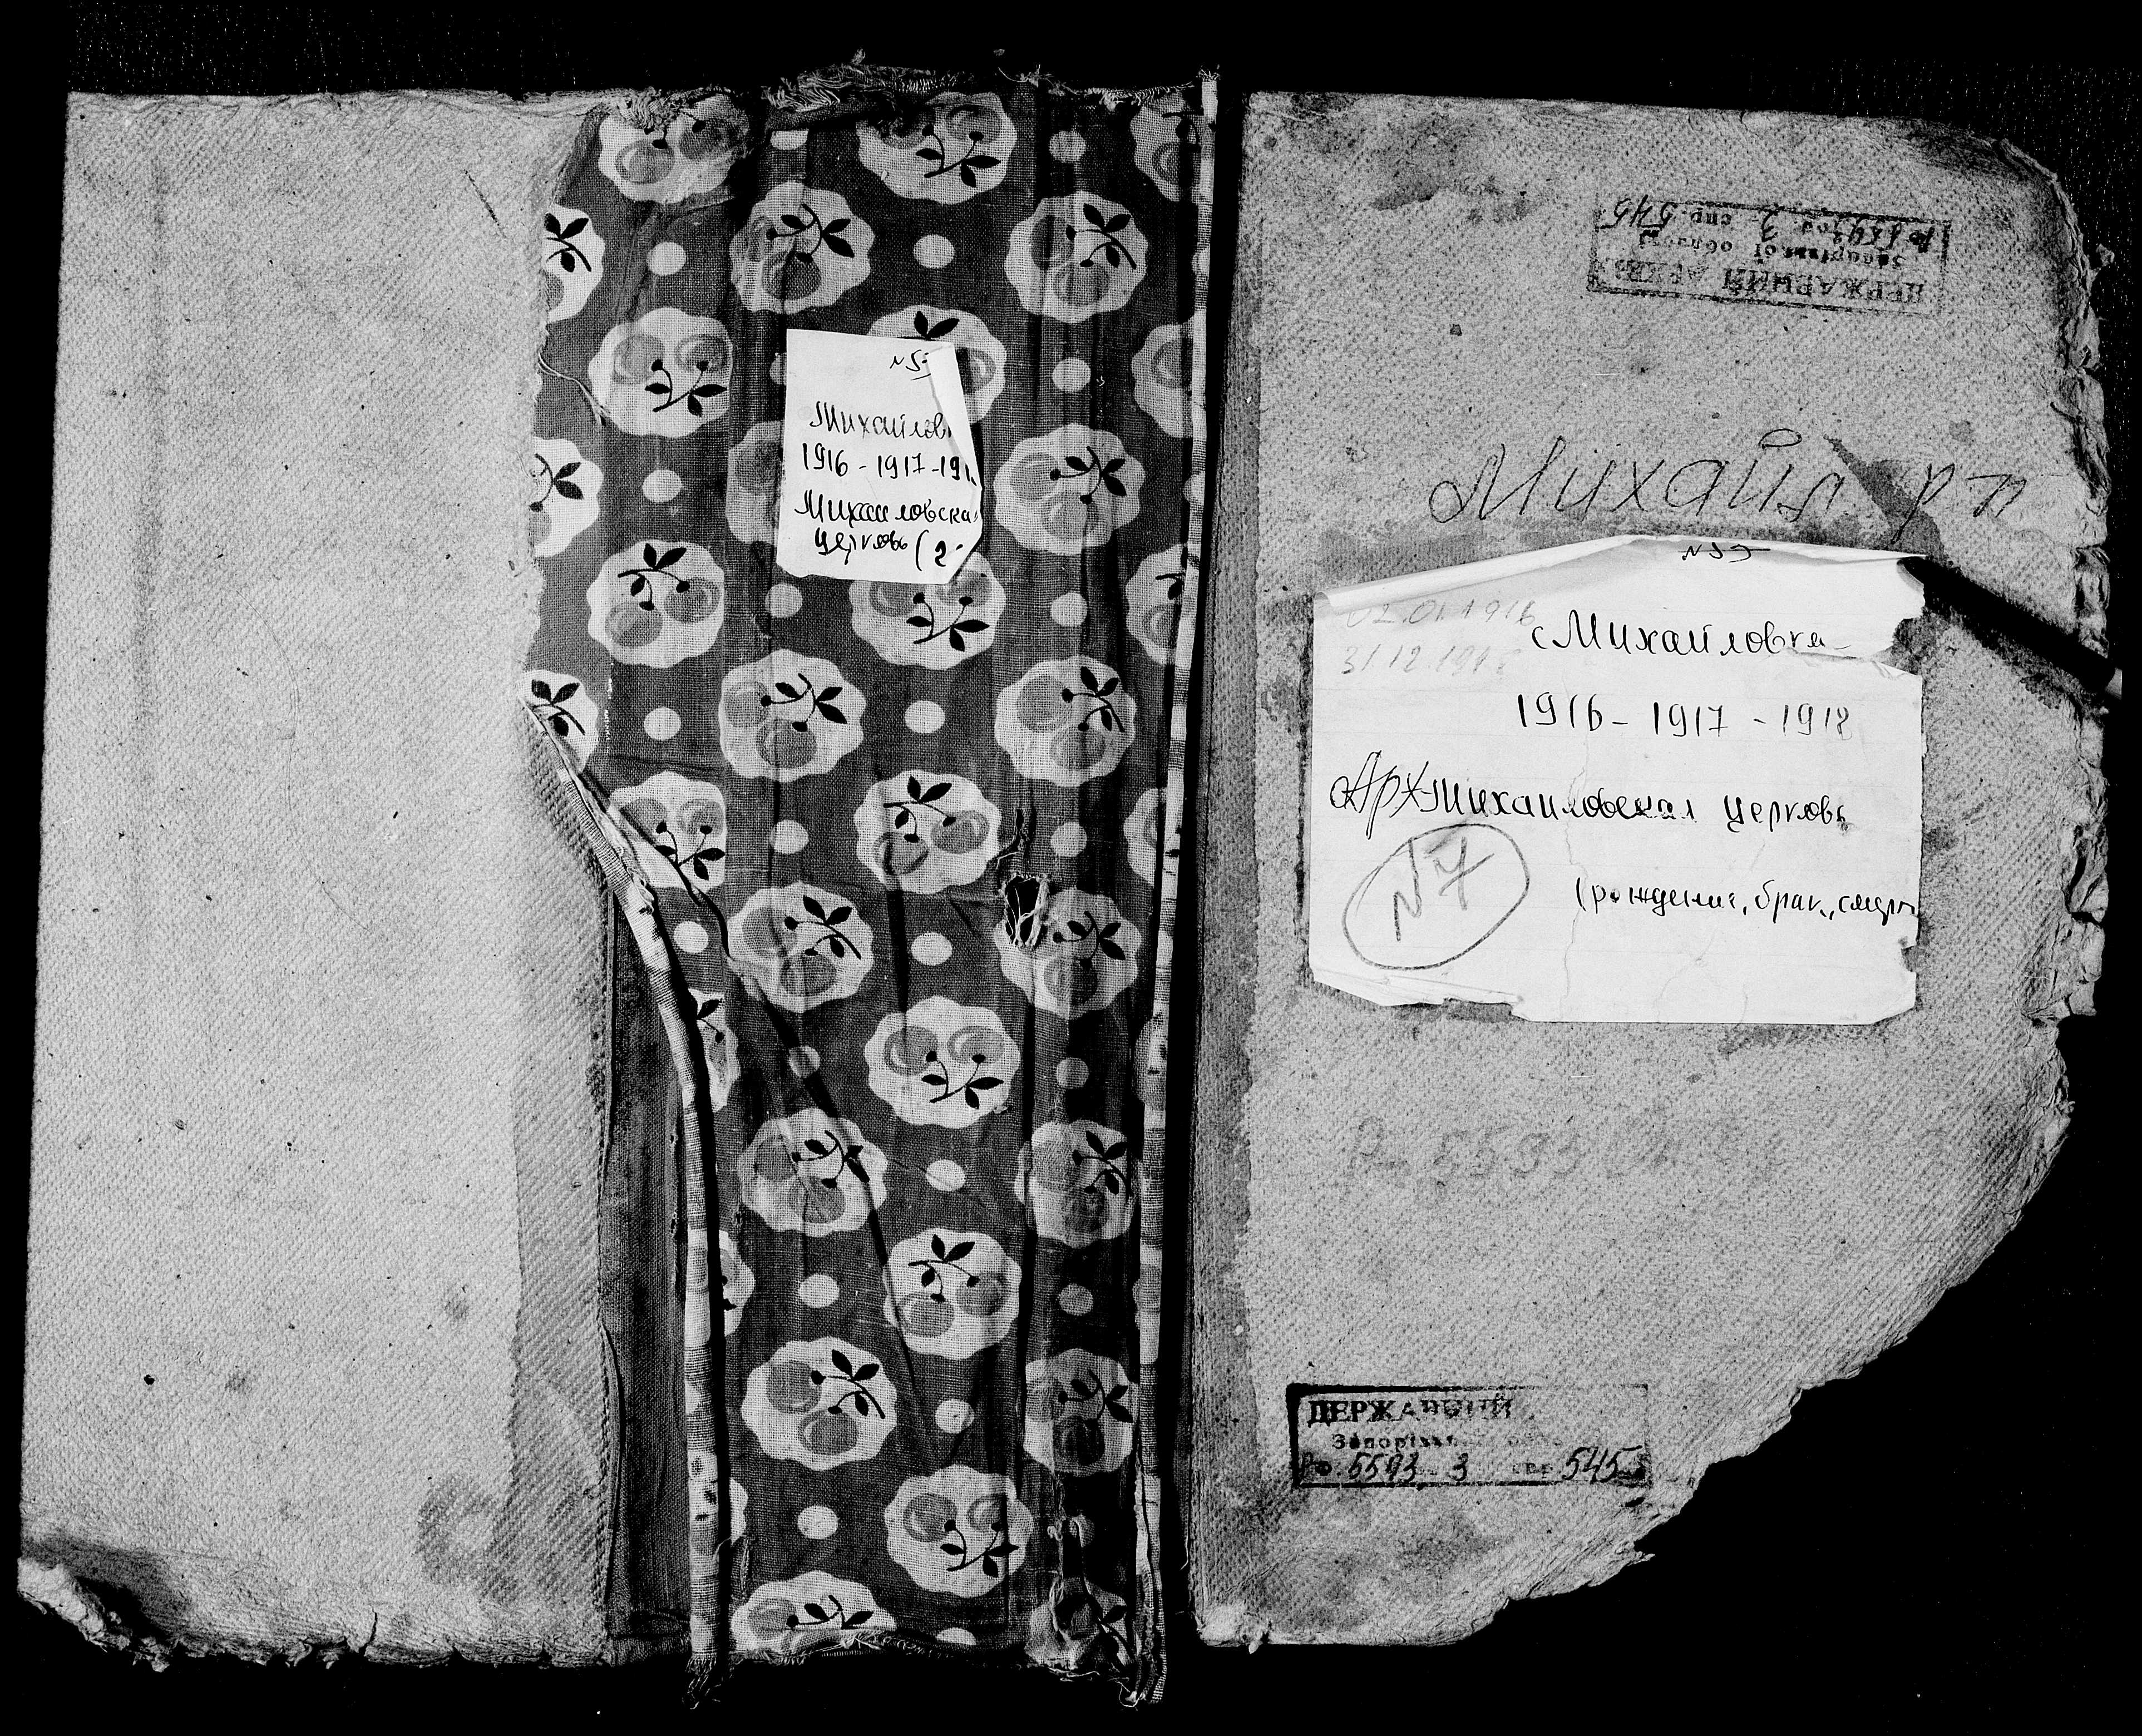 Михайлов
1916 - 1917 - 191
Михайловска
церковь (2
ДЕРЖАВНИЙ АРХІВ
Запорізької області
Р 5593 оп. 3 спр. 545
Михайл р-н
02.01.1916
31.12.1918
с Михайловка
1916 - 1917 - 1918
АрхМихайловская церковь
N7
(рождение, брак, смерт
Р-5593
ДЕРЖАВНИЙ
Запорізьк
Р 5593 3 спр 545